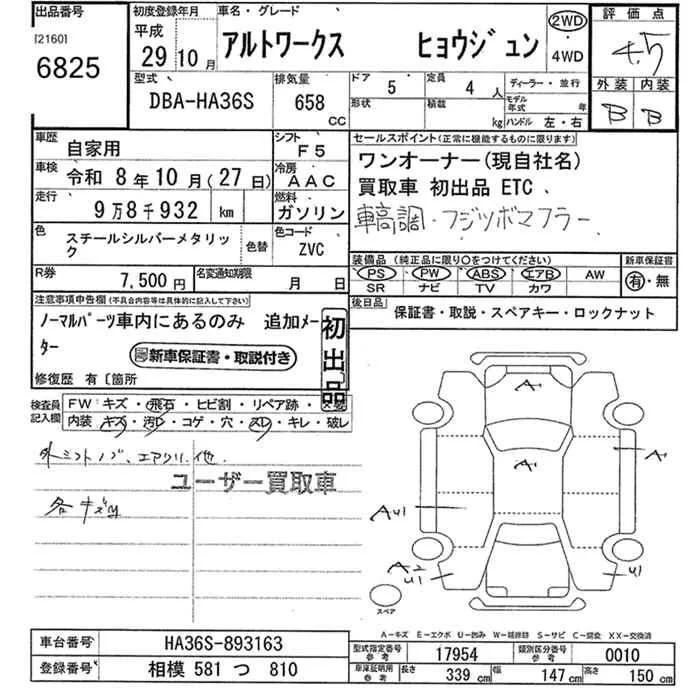 出品番号 初度登録年月 車名・グレード 評価点
[2160] 平成 2WD 4.5
6825 29 10月 アルトワークス ヒョウジュン ・
4WD
型式 排気量 ドア 5 定員 4人 ディーラー・並行 外装 内装
DBA-HA36S 658 CC 形状 積載 kg モデル年式 年 B B
ハンドル 左・右
車歴 自家用 シフト F5 セールスポイント(正常に機能するものに限ります)
車検 令和 8年10月(27日) 冷房 AAC ワンオーナー(現自社名)
走行 9万8千932 km 燃料 ガソリン 買取車 初出品 ETC 、
色 スチールシルバーメタリック 色替 色コード ZVC 車高調・フジツボマフラー
R券 7,500円 名変通知期限 月 日 装備品 (純正品に限り○をつけてください) 新車保証書
PS PW ABS エアB AW 有・無
SR ナビ TV カワ
注意事項申告欄(不具合内容等は具体的に記入して下さい) 後日品 保証書・取説・スペアキー・ロックナット
ノーマルパーツ車内にあるのみ 追加メーター
新車保証書・取説付き
初出品
修復歴 有〔箇所 〕
検査員記入欄 FW キズ・飛石・ヒビ割・リペア跡・
内装 キズ・汚レ・コゲ・穴・スレ・キレ・破レ
外シフトノブ、エアクリ、他
ユーザー買取車
各キズ凹
A
A
A
AU1
A2
U1
U1
スペア
A-キズ E-エクボ U-凹み W-補修跡 S-サビ C-腐食 XX-交換済
車台番号 HA36S-893163 型式指定番号 参考 17954 類別区分番号 参考 0010
登録番号 相模 581 つ 810 車庫証明用 参考 長さ 339 cm 幅 147 cm 高さ 150 cm